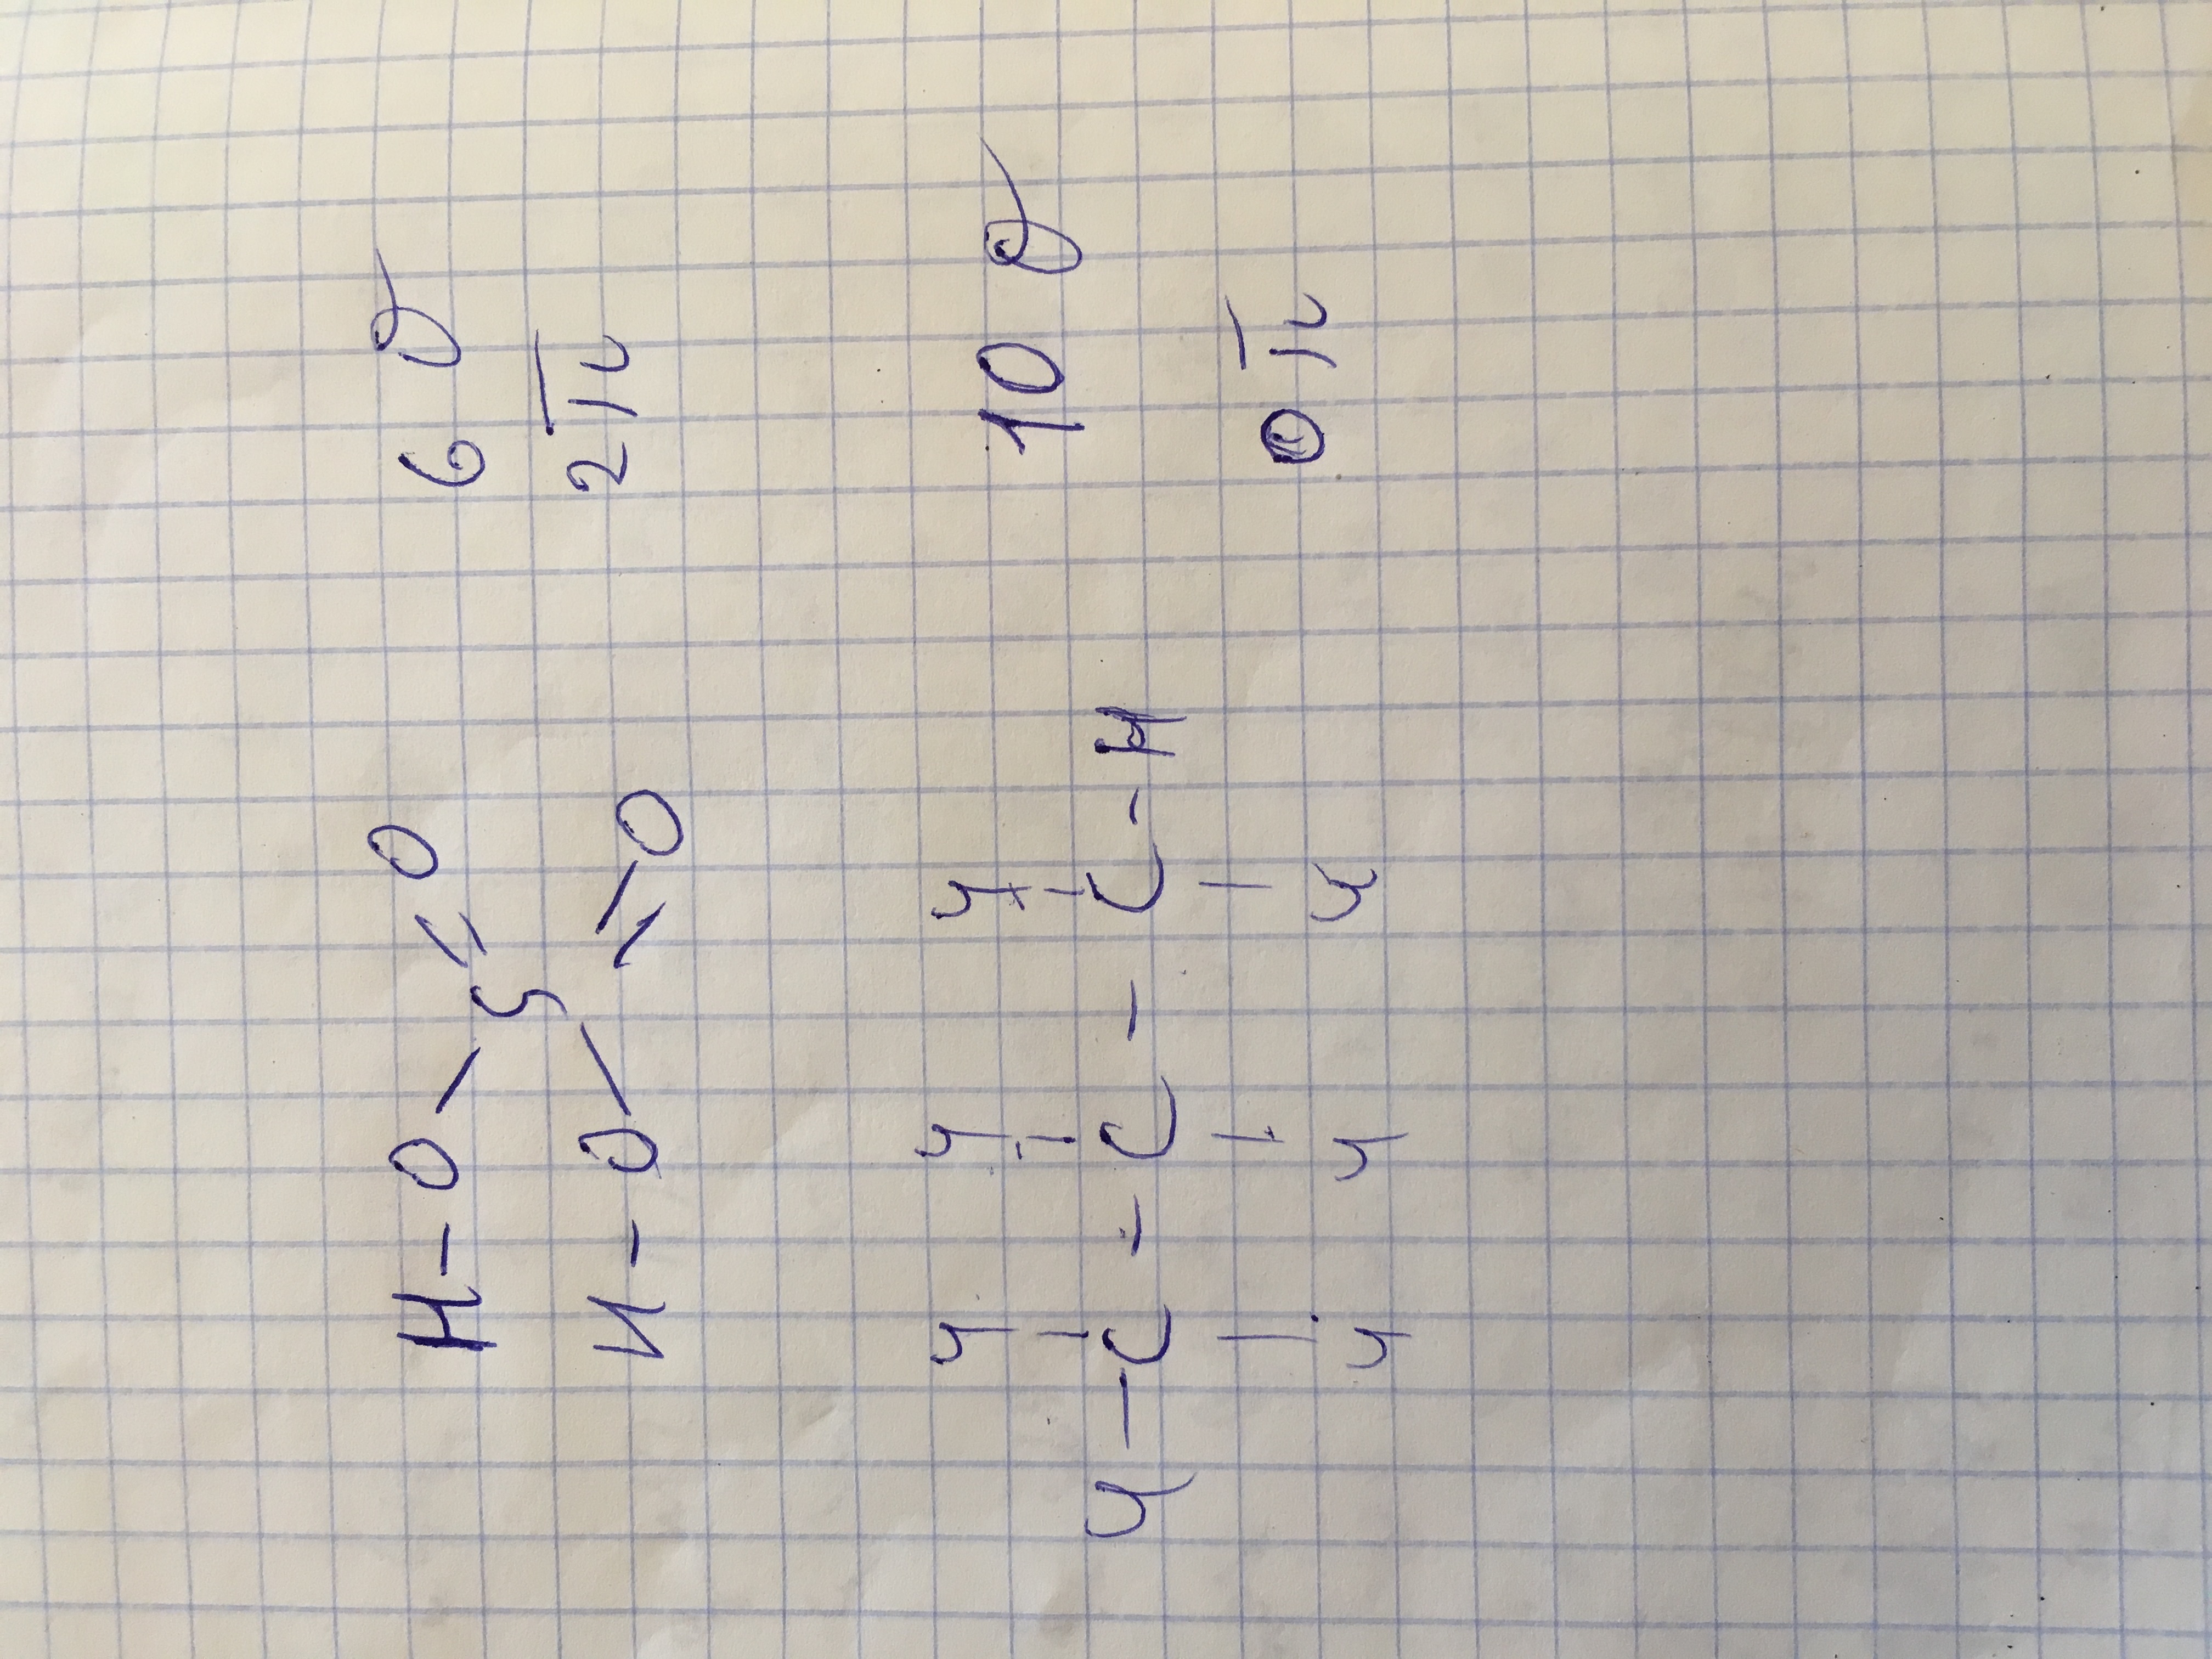 H-O O 6 σ
S
H-O O 2 π
H H H 10 σ
H-C-C-C-H
H H H 0 π